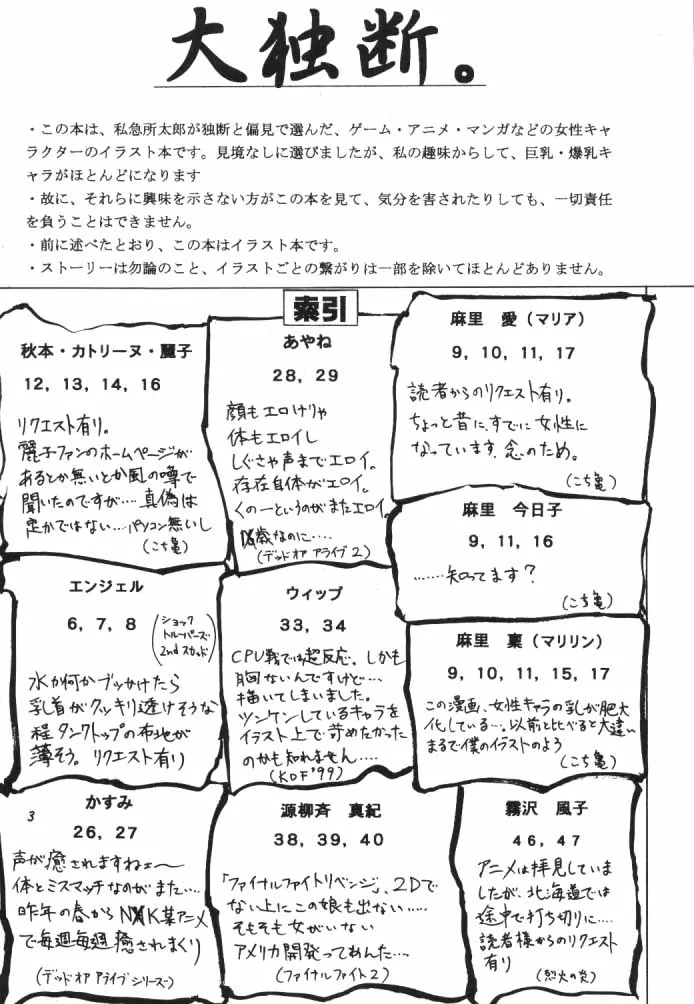 大独断。
・この本は、私急所太郎が独断と偏見で選んだ、ゲーム・アニメ・マンガなどの女性キャ
ラクターのイラスト本です。見境なしに選びましたが、私の趣味からして、巨乳・爆乳キ
ャラがほとんどになります
・故に、それらに興味を示さない方がこの本を見て、気分を害されたりしても、一切責任
を負うことはできません。
・前に述べたとおり、この本はイラスト本です。
・ストーリーは勿論のこと、イラストごとの繋がりは一部を除いてほとんどありません。
索引
秋本・カトリーヌ・麗子
12, 13, 14, 16
リクエスト有り。
麗子ファンのホームページが
あるとか無いとか風の噂で
聞いたのですが‥‥真偽は
定かではない‥‥パソコン無いし
(こち亀)
あやね
28, 29
(デッドオアアライブ2)
麻里 愛(マリア)
9, 10, 11, 17
読者からのリクエスト有り。
ちょっと昔に、すでに女性に
なっています、念のため。
(こち亀)
麻里 今日子
9, 11, 16
‥‥‥知ってます?
(こち亀)
エンジェル
6, 7, 8
(ショック
トルーパーズ
2nd スカッド)
水か何かブッかけたら
乳首がクッキリ透けそうな
程タンクトップの布地が
薄そう。リクエスト有り
ウィップ
33, 34
CPU戦では超反応、しかも
胸ないんですけど‥‥
描いてしまいました。
ツンケンしているキャラを
イラスト上で苛めたかった
のかも知れません‥‥
(KOF'99)
麻里 稟(マリリン)
9, 10, 11, 15, 17
この漫画、女性キャラの乳が肥大
化している‥‥以前と比べると大違い
まるで僕のイラストのよう
(こち亀)
3
かすみ
26, 27
(デッドオアアライブシリーズ)
源柳斉 真紀
38, 39, 40
「ファイナルファイトリベンジ」、2Dで
ない上にこの娘も出ない‥‥‥
そもそも女がいない
アメリカ開発ってあんた‥‥
(ファイナルファイト2)
霧沢 風子
46, 47
アニメは拝見していま
したが、北海道では
途中で打ち切りに‥‥
読者様からのリクエスト
有り
(烈火の炎)